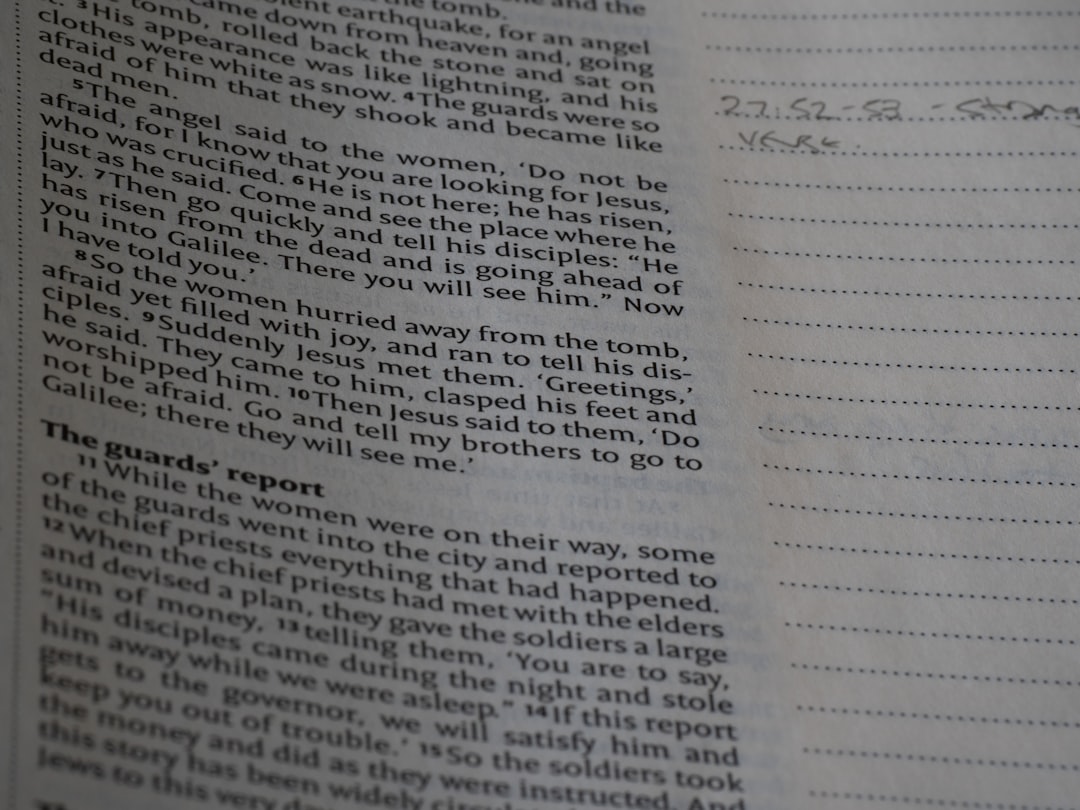 the tomb.
and the
violent earthquake, for an angel
came down from heaven and, going
tomb, rolled back the stone and sat on
3 His appearance was like lightning, and his
clothes were white as snow. 4 The guards were so
afraid of him that they shook and became like
dead men.
5 The angel said to the women, ‘Do not be
afraid, for I know that you are looking for Jesus,
who was crucified. 6 He is not here; he has risen,
just as he said. Come and see the place where he
lay. 7 Then go quickly and tell his disciples: “He
has risen from the dead and is going ahead of
you into Galilee. There you will see him.” Now
I have told you.’
8 So the women hurried away from the tomb,
afraid yet filled with joy, and ran to tell his dis-
ciples. 9 Suddenly Jesus met them. ‘Greetings,’
he said. They came to him, clasped his feet and
worshipped him. 10 Then Jesus said to them, ‘Do
not be afraid. Go and tell my brothers to go to
Galilee; there they will see me.’
The guards’ report
11 While the women were on their way, some
of the guards went into the city and reported to
the chief priests everything that had happened.
12 When the chief priests had met with the elders
and devised a plan, they gave the soldiers a large
sum of money, 13 telling them, ‘You are to say,
“His disciples came during the night and stole
him away while we were asleep.” 14 If this report
gets to the governor, we will satisfy him and
keep you out of trouble.’ 15 So the soldiers took
the money and did as they were instructed. And
this story has been widely
Jews to this very
27:52-53 - Strong
verse.